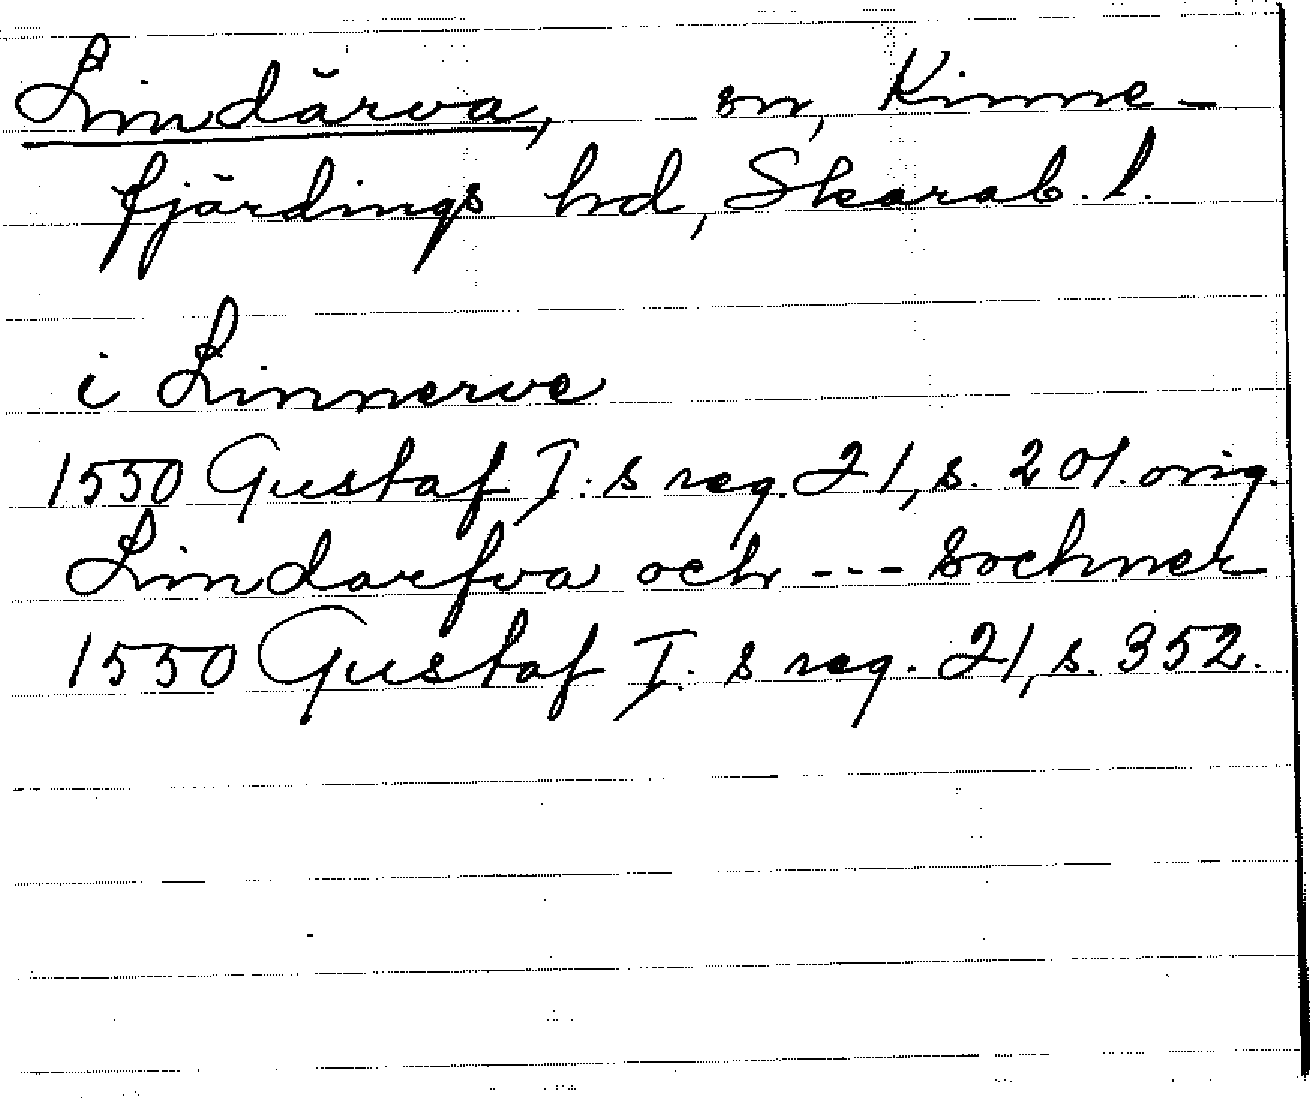 Lindärva, sn, Kinne-
fjärdings hd, Skarab. l.
i Linnerve
1550 Gustaf I. s reg. 21, s. 201. orig.
Lindarfva och --- sochner
1550 Gustaf I. s reg. 21, s. 352.